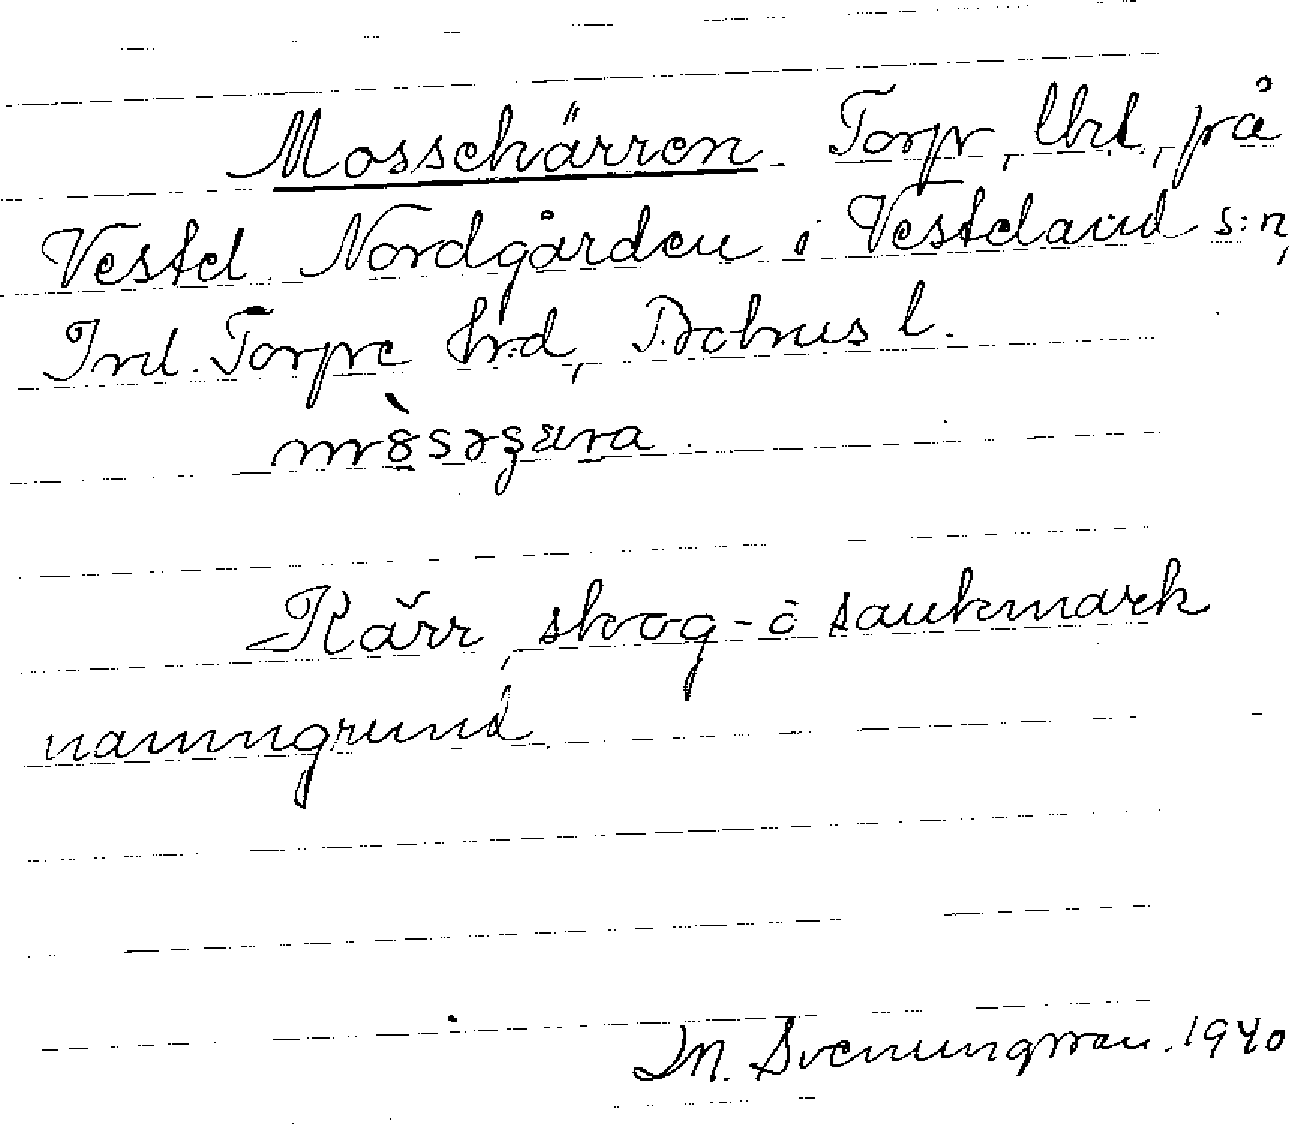 Mosschärren. Torp, Uhrl, på
Vestel Nordgården i Vesteland s:n,
Inl. Torpe hrd, Bohus l.
Kärr, skog- o sankmark
namngrund
M. Svenungsson. 1940